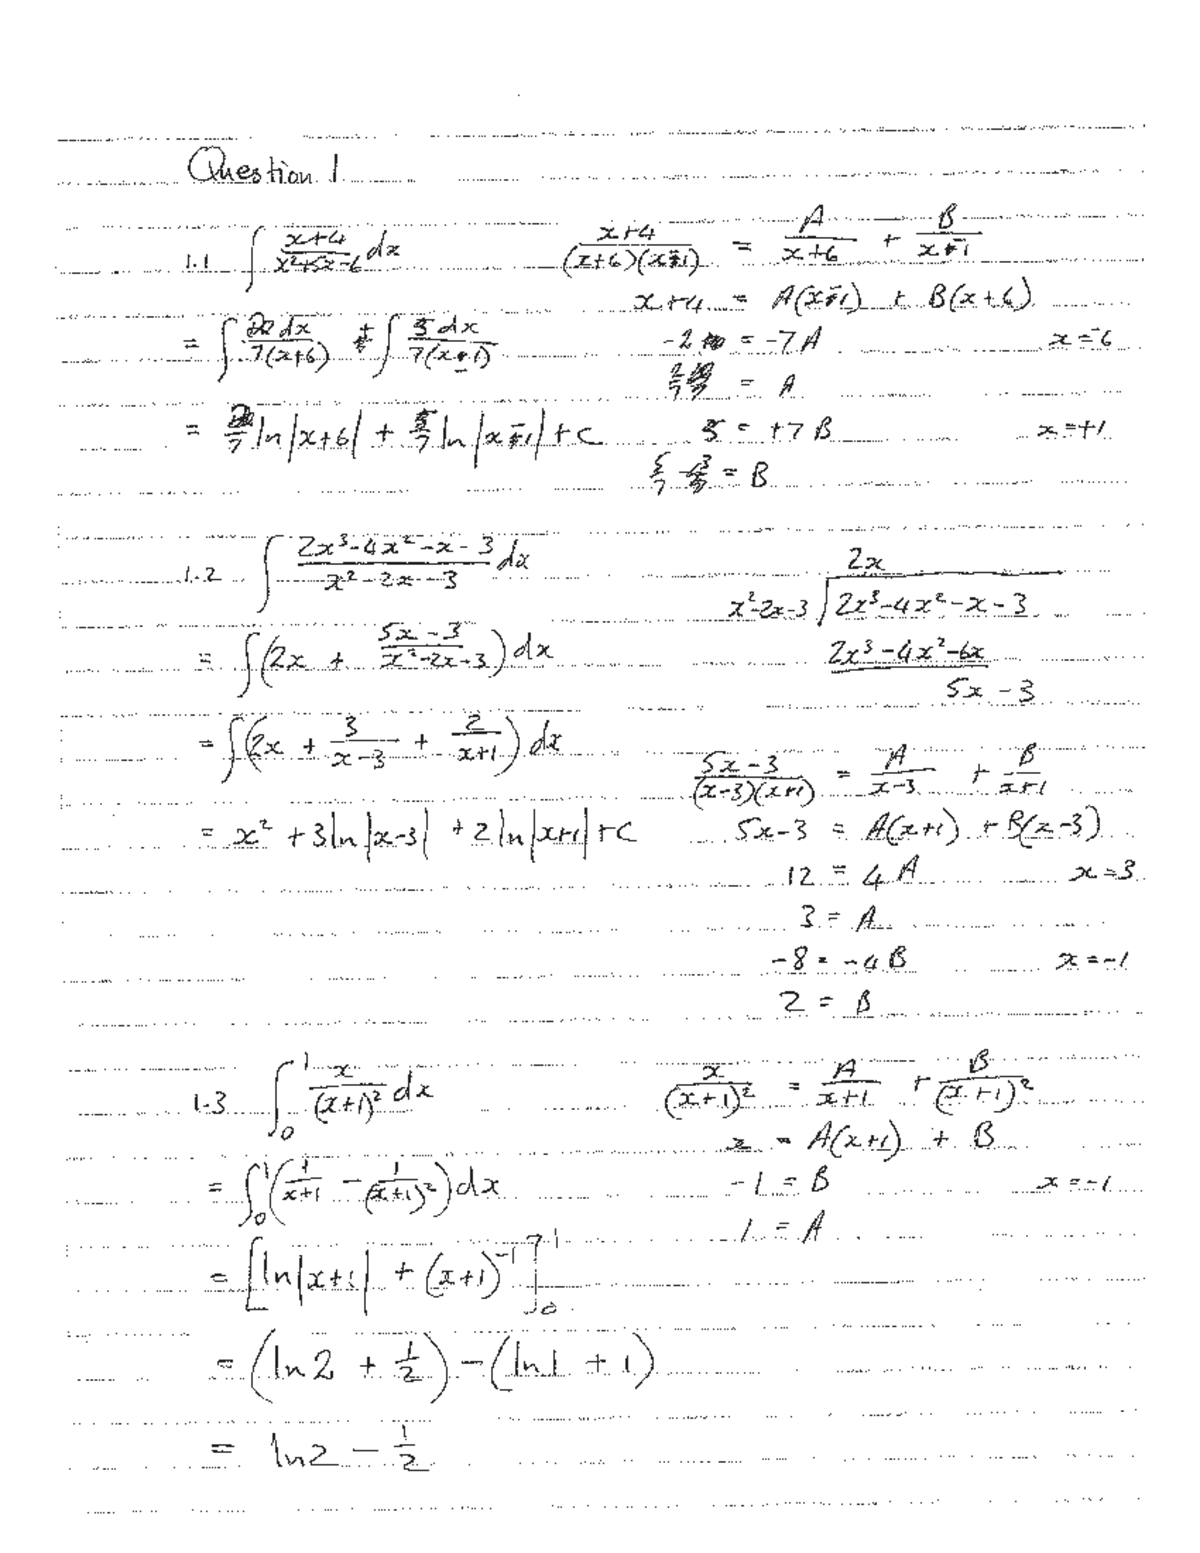 Question 1
1.1 ∫ (x+4)/(x²+5x-6) dx
(x+4)/((x+6)(x-1)) = A/(x+6) + B/(x-1)
x+4 = A(x-1) + B(x+6)
= ∫ 2dx/(7(x+6)) + ∫ 5dx/(7(x-1))
-2 = -7A x=-6
2/7 = A
= 2/7 ln|x+6| + 5/7 ln|x-1| + c
5 = +7B x=+1
5/7 = B
1.2 ∫ (2x³-4x²-x-3)/(x²-2x-3) dx
2x
x²-2x-3 √ 2x³-4x²-x-3
= ∫(2x + (5x-3)/(x²-2x-3)) dx
2x³-4x²-6x
5x-3
= ∫(2x + 3/(x-3) + 2/(x+1)) dx
(5x-3)/((x-3)(x+1)) = A/(x-3) + B/(x+1)
= x² + 3ln|x-3| + 2ln|x+1| + c
5x-3 = A(x+1) + B(x-3)
12 = 4A x=3
3 = A
-8 = -4B x=-1
2 = B
1.3 ∫₀¹ x/(x+1)² dx
x/(x+1)² = A/(x+1) + B/(x+1)²
x = A(x+1) + B
= ∫₀¹ (1/(x+1) - 1/(x+1)²) dx
-1 = B x=-1
1 = A
= [ln|x+1| + (x+1)⁻¹]₀¹
= (ln2 + 1/2) - (ln1 + 1)
= ln2 - 1/2